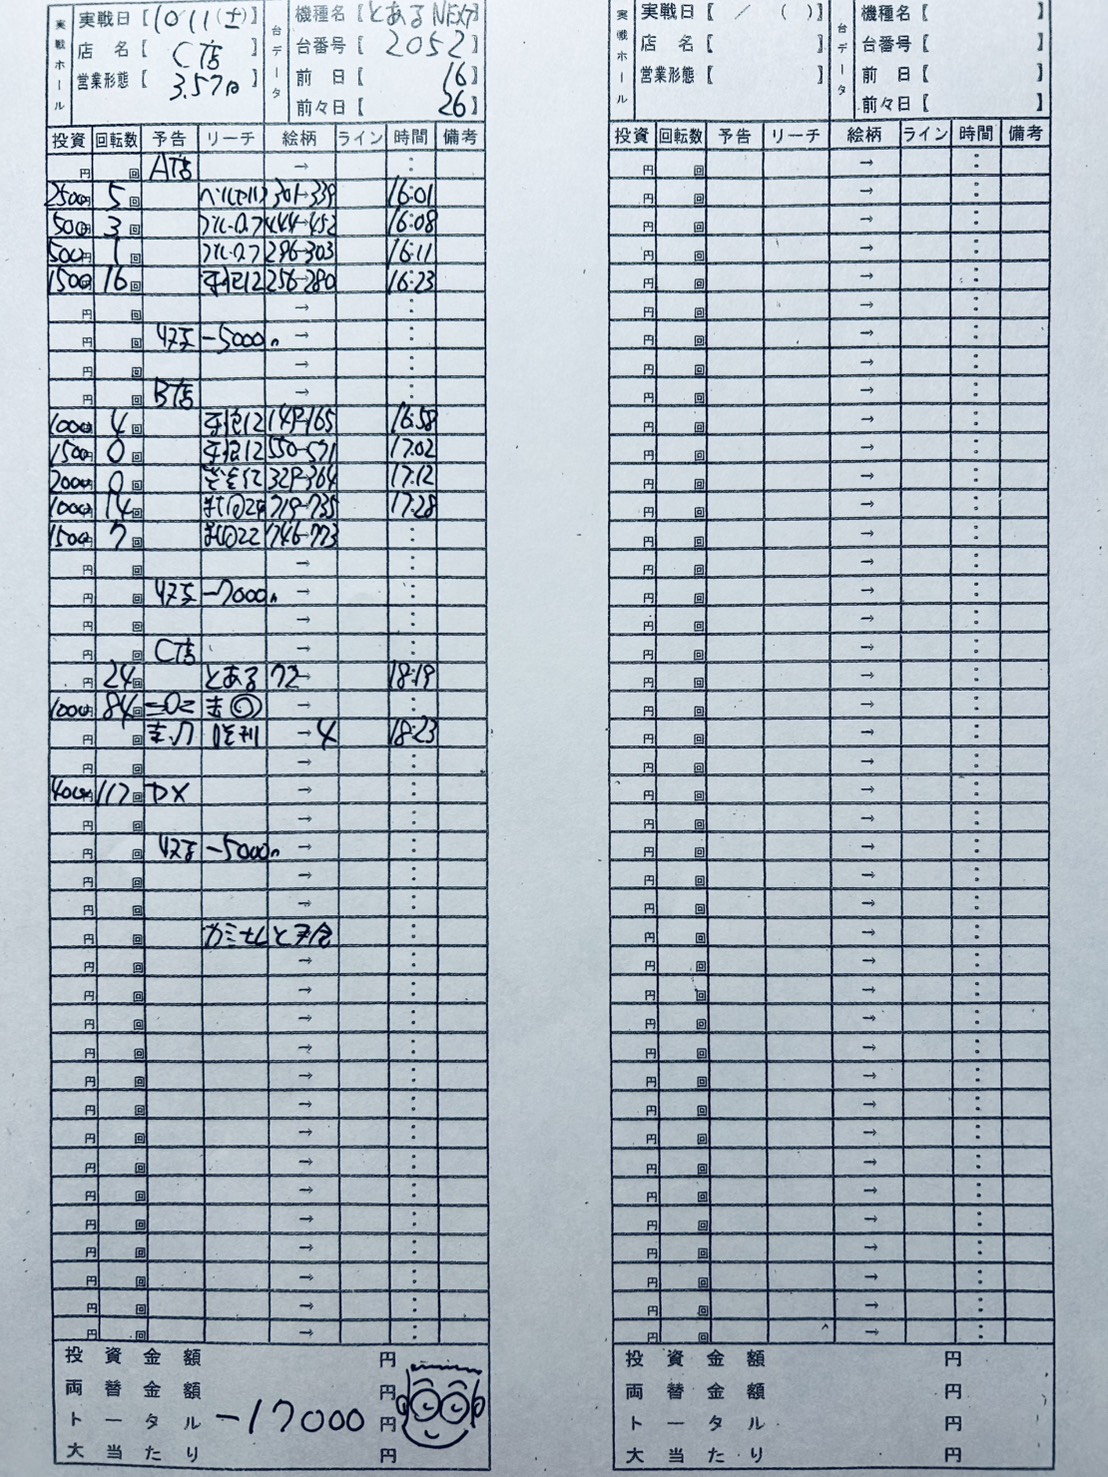 実戦ホール
実戦日【10/11(土)】
店 名【C店】
営業形態【3.57円】
台データ
機種名【とあるNEXT】
台番号【2052】
前 日【16】
前々日【26】
投資 回転数 予告 リーチ 絵柄 ライン 時間 備考
円 回 A店 → :
2500円 5回 301→339 16:01
500円 3回 444→452 16:08
500円 1回 296→303 16:11
1500円 16回 256→280 16:23
円 回 → :
円 回 -5000円 → :
円 回 → :
円 回 B店 → :
1000円 4回 149→165 16:58
1500円 0回 550→571 17:02
2000円 0回 329→364 17:12
1000円 14回 719→735 17:28
1500円 7回 746→773 :
円 回 → :
円 回 -7000円 → :
円 回 → :
円 回 C店 → :
円 24回 とある 72→ 18:19
1000円 84回 → :
円 回 →4 18:23
円 回 → :
4000円 117回 DX → :
円 回 → :
円 回 -5000円 → :
円 回 → :
円 回 → :
円 回 :
円 回 → :
円 回 → :
円 回 → :
円 回 → :
円 回 → :
円 回 → :
円 回 → :
円 回 → :
円 回 → :
円 回 → :
円 回 → :
円 回 → :
円 回 → :
円 回 → :
投資金額 円
両替金額 円
トータル -17000円
大当たり 円
実戦ホール
実戦日【 / ( )】
店 名【 】
営業形態【 】
台データ
機種名【 】
台番号【 】
前 日【 】
前々日【 】
投資 回転数 予告 リーチ 絵柄 ライン 時間 備考
円 回 → :
円 回 → :
円 回 → :
円 回 → :
円 回 → :
円 回 → :
円 回 → :
円 回 → :
円 回 → :
円 回 → :
円 回 → :
円 回 → :
円 回 → :
円 回 → :
円 回 → :
円 回 → :
円 回 → :
円 回 → :
円 回 → :
円 回 → :
円 回 → :
円 回 → :
円 回 → :
円 回 → :
円 回 → :
円 回 → :
円 回 → :
円 回 → :
円 回 → :
円 回 → :
円 回 → :
円 回 → :
円 回 → :
円 回 → :
円 回 → :
円 回 → :
円 回 → :
円 回 → :
円 回 → :
円 回 → :
円 回 → :
円 回 → :
投資金額 円
両替金額 円
トータル 円
大当たり 円